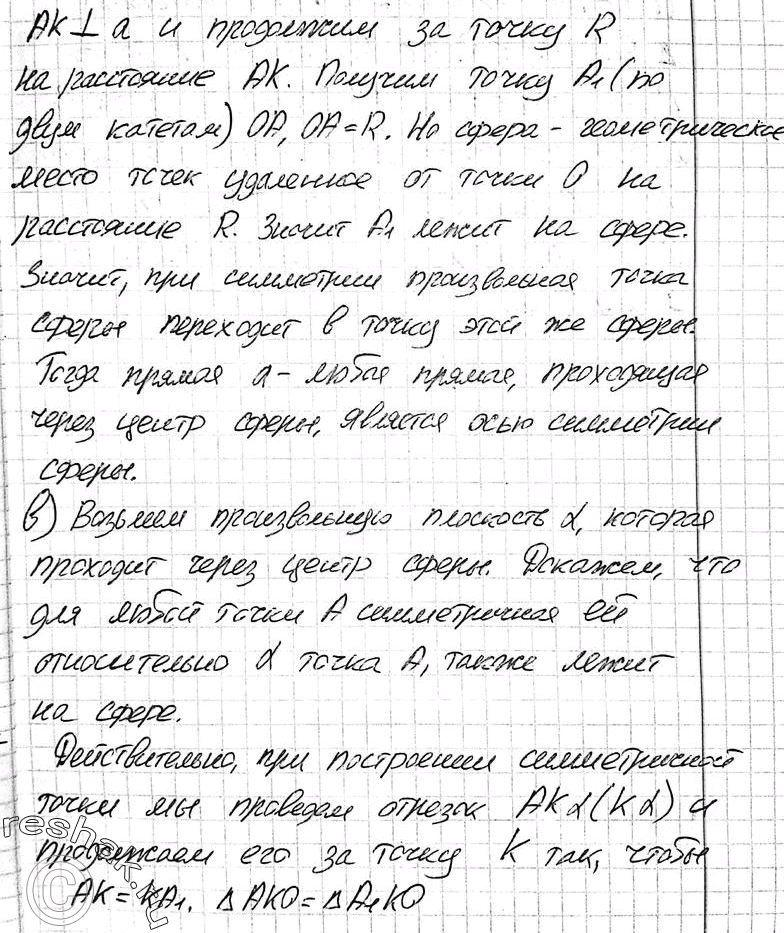 AK⊥a и продолжим за точку R
на расстояние AK. Получим точку A₁ (по
двум катетам) OA, OA=R. Но сфера - геометрическое
место точек удаленное от точки O на
расстояние R. Значит A₁ лежит на сфере.
Значит, при симметрии произвольная точка
сферы переходит в точку этой же сферы.
Тогда прямая a - любая прямая, проходящая
через центр сферы, является осью симметрии
сферы.
в) Возьмем произвольную плоскость α, которая
проходит через центр сферы. Докажем, что
для любой точки A симметричная ей
относительно α точка A, также лежит
на сфере.
Действительно, при построении симметричной
точки мы проведем отрезок AKα(Kα) и
продолжаем его за точку K так, чтобы
AK=KA₁. ΔAKO=ΔA₁KO
reshak.ru
©